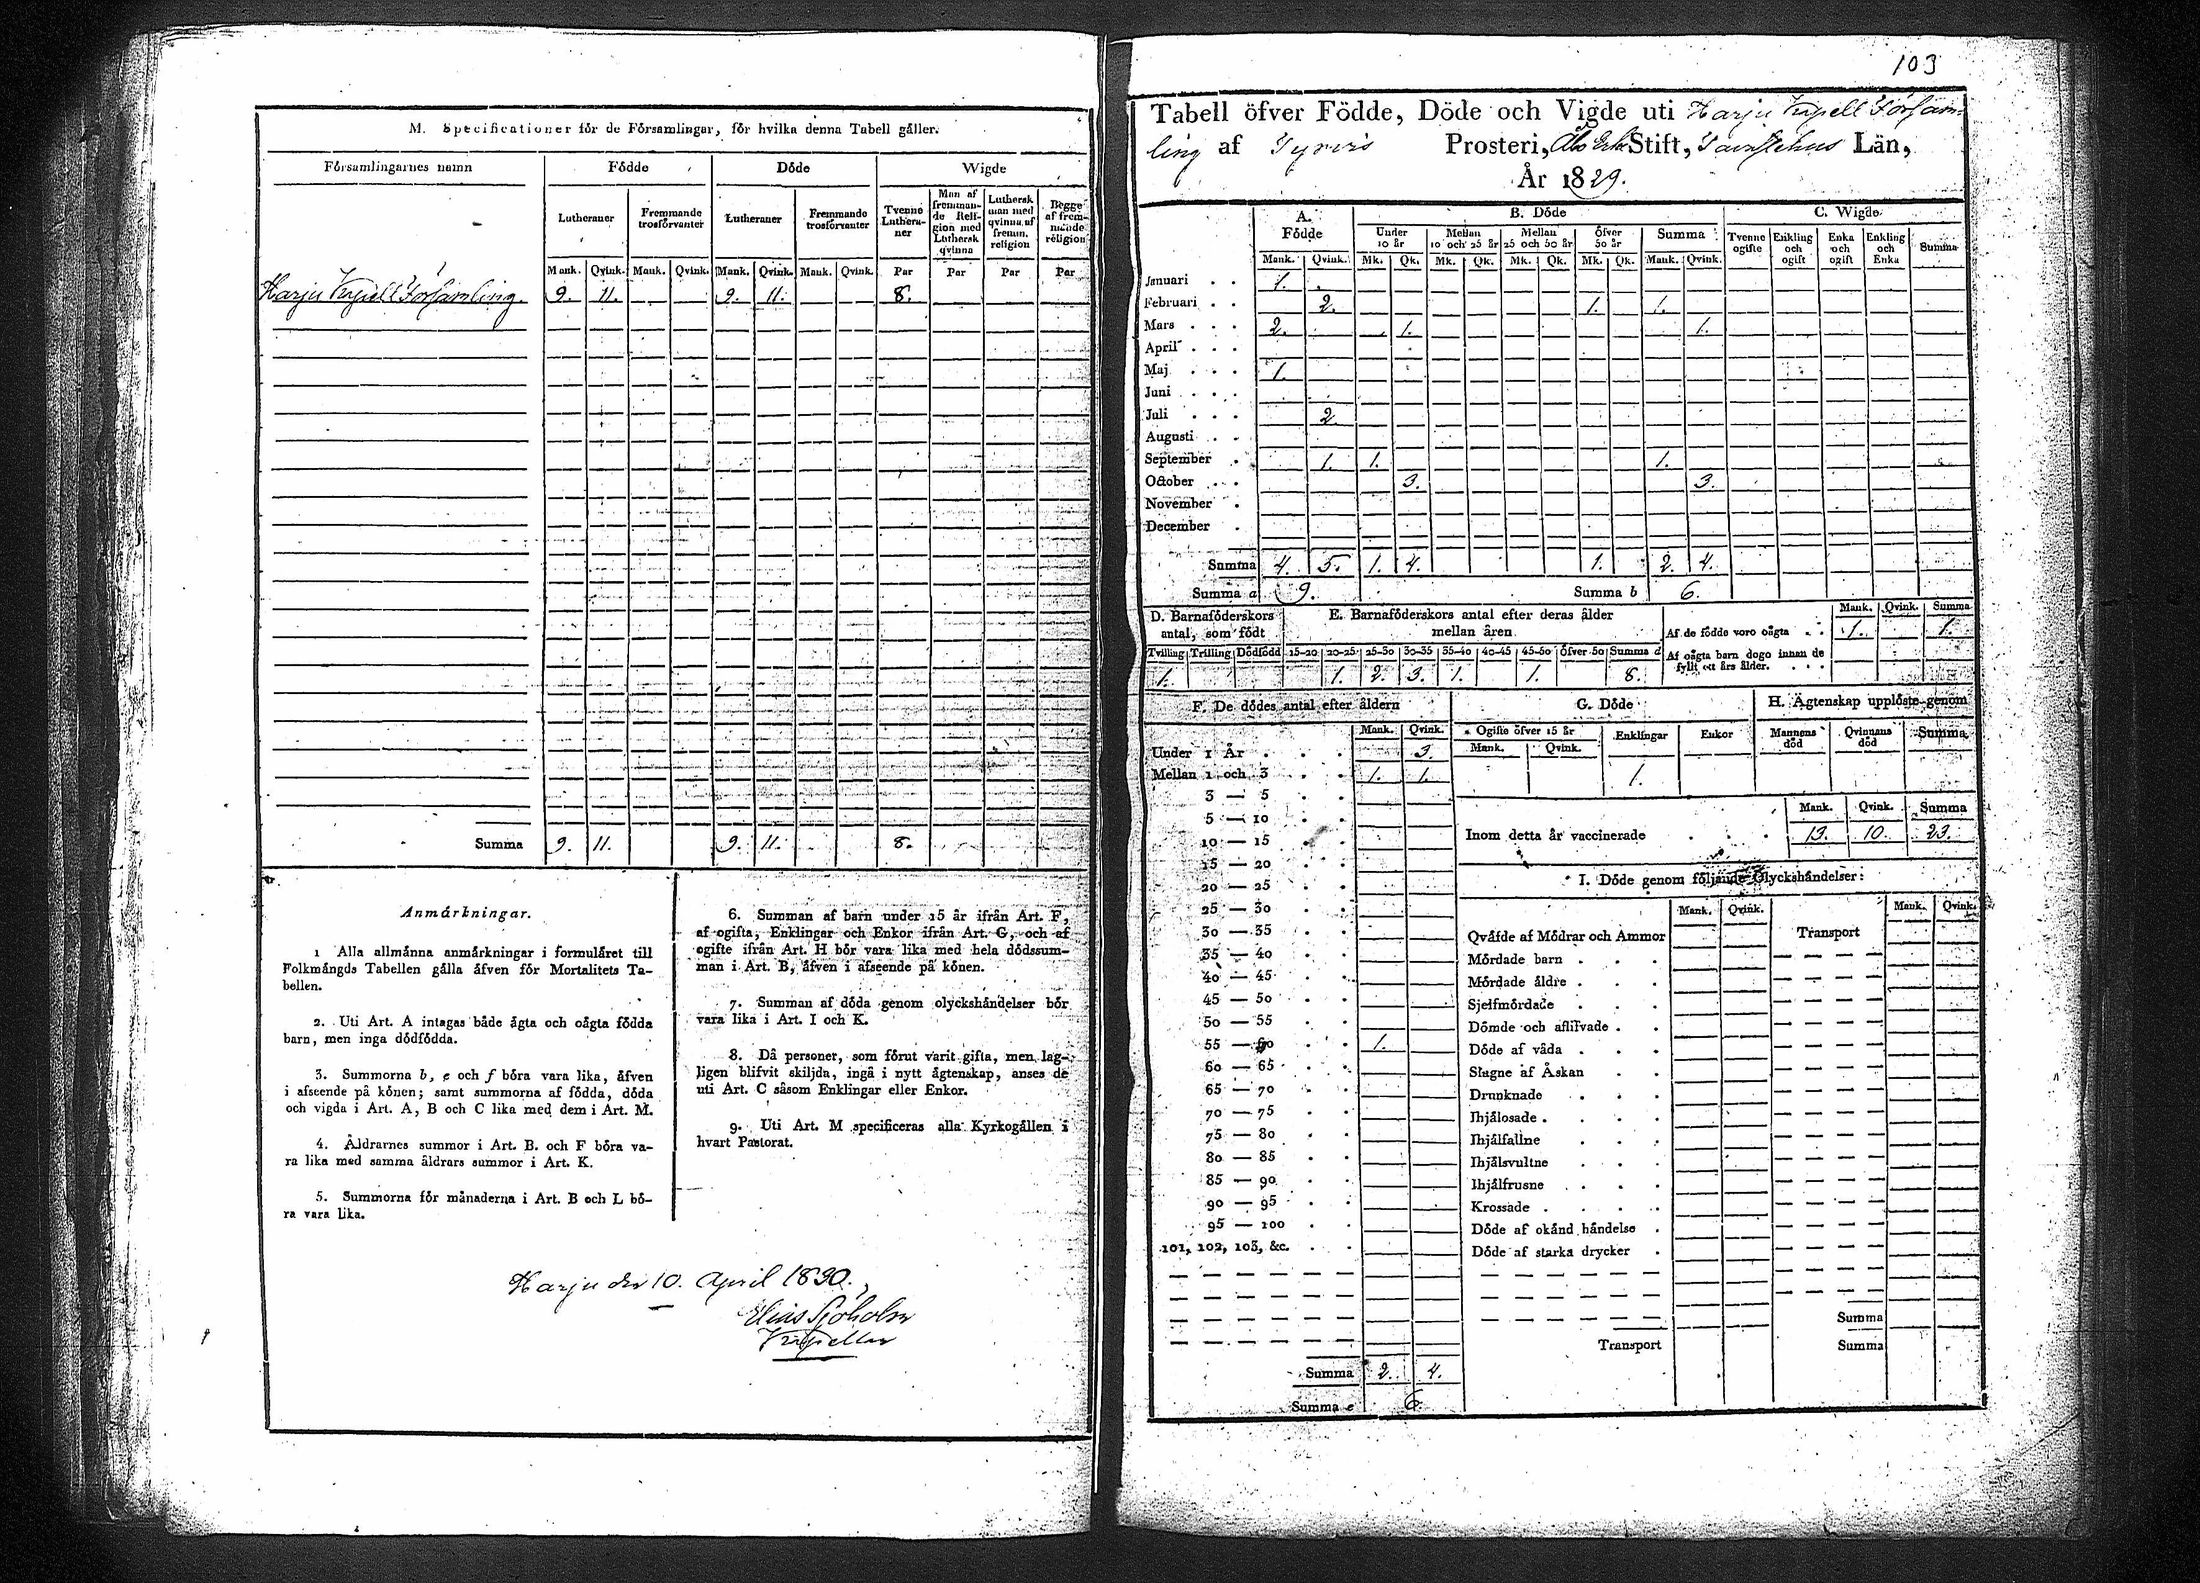 M. Specificationer för de Församlingar, för hvilka denna Tabell gäller.
Församlingarnes namn
Födde
Döde
Wigde
Lutheraner
Fremmande trosförvanter
Lutheraner
Fremmande trosförvanter
Tvenne Lutheraner
Man af fremmande Religion med Luthersk qvinna
Luthersk man med qvinna af fremm. religion
Begge af fremmande religion
Mank. Qvink. Mank. Qvink. Mank. Qvink. Mank. Qvink. Par Par Par Par
Harju Kapell Församling. 9. 11. 9. 11. 8.
Summa 9. 11. 9. 11. 8.
Anmärkningar.
1 Alla allmänna anmärkningar i formuläret till
Folkmängds Tabellen gälla äfven för Mortalitets Ta-
bellen.
2. Uti Art. A intagas både ägta och oägta födda
barn, men inga dödfödda.
3. Summorna b, e och f böra vara lika, äfven
i afseende på könen; samt summorna af födda, döda
och vigda i Art. A, B och C lika med dem i Art. M.
4. Åldrarnes summor i Art. B. och F böra va-
ra lika med samma åldrars summor i Art. K.
5. Summorna för månaderna i Art. B och L bö-
ra vara lika.
6. Summan af barn under 15 år ifrån Art. F,
af ogifta, Enklingar och Enkor ifrån Art. G, och af
ogifte ifrån Art. H bör vara lika med hela dödssum-
man i Art. B, äfven i afseende på könen.
7. Summan af döda genom olyckshändelser bör
vara lika i Art. I och K.
8. Då personer, som förut varit gifta, men lag-
ligen blifvit skiljda, ingå i nytt ägtenskap, anses de
uti Art. C såsom Enklingar eller Enkor.
9. Uti Art. M specificeras alla Kyrkogällen i
hvart Pastorat.
Harju den 10. April 1830.
Elias Sjöholm
Kapellan
103
Tabell öfver Födde, Döde och Vigde uti Harju Kapell Försam-
ling af Tyrvis Prosteri, Åbo Erke Stift, Tavastehus Län,
År 1829.
A. Födde
B. Döde
C. Wigde
Under 10 år
Mellan 10 och 25 år
Mellan 25 och 50 år
Öfver 50 år
Summa
Tvenne ogifte
Enkling och ogift
Enka och ogift
Enkling och Enka
Summa
Mank. Qvink. Mk. Qk. Mk. Qk. Mk. Qk. Mk. Qk. Mank. Qvink.
Januari 1.
Februari 2. 1. 1.
Mars 2. 1. 1.
April
Maj 1.
Juni
Juli 2.
Augusti
September 1. 1. 1.
October 3. 3.
November
December
Summa 4. 5. 1. 4. 1. 2. 4.
Summa a 9. Summa b 6.
D. Barnaföderskors antal, som födt
Tvilling Trilling Dödfödd
1.
E. Barnaföderskors antal efter deras ålder mellan åren
15-20 20-25 25-30 30-35 35-40 40-45 45-50 öfver 50 Summa d
1. 2. 3. 1. 1. 8.
Mank. Qvink. Summa
Af de födde voro oägta 1. 1.
Af oägta barn dogo innan de
fyllt ett års ålder.
F. De dödes antal efter åldern
Mank. Qvink.
Under 1 År 3.
Mellan 1 och 3 1. 1.
3 — 5
5 — 10
10 — 15
15 — 20
20 — 25
25 — 30
30 — 35
35 — 40
40 — 45
45 — 50
50 — 55
55 — 60 1.
60 — 65
65 — 70
70 — 75
75 — 80
80 — 85
85 — 90
90 — 95
95 — 100
101, 102, 103, &c.
Summa 2. 4.
Summa e 6.
G. Döde
Ogifte öfver 15 år
Enklingar
Enkor
Mank. Qvink.
1.
H. Ägtenskap upplöste genom
Mannens död
Qvinnans död
Summa
Mank. Qvink. Summa
Inom detta år vaccinerade 13. 10. 23.
I. Döde genom följande Olyckshändelser:
Mank. Qvink. Mank. Qvink.
Qväfde af Mödrar och Ammor
Transport
Mördade barn
Mördade äldre
Sjelfmördade
Dömde och aflifvade
Döde af våda
Slagne af Åskan
Drunknade
Ihjälosade
Ihjälfallne
Ihjälsvultne
Ihjälfrusne
Krossade
Döde af okänd händelse
Döde af starka drycker
Summa
Transport Summa